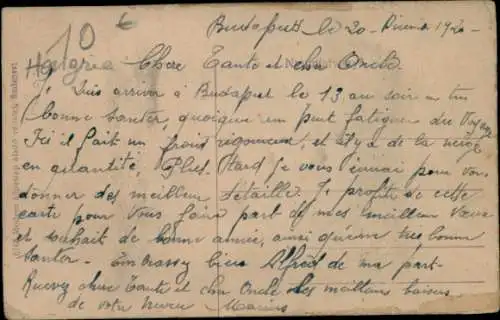 10 €
Hongrie
Budapest le 20 1920
Chere Tante et cher Oncle
Suis arriver à Budapest le 13 au soir en
bonne santer, quoique un peut fatiguer du Voyage
Ici il fait un froid rigoureux, et il y a de la neige
en quantité, Plus tard je vous pour vous
donner des meilleur détaille. Je profite de cette
carte pour vous faire part de mes meilleur Vœux
et souhait de bonne année, ainsi qu'une bonne
santer - Embrassez bien Alfred de ma part.
Recevez chere Tante et cher Oncle les meilleurs baisers
de votre neveu Marius